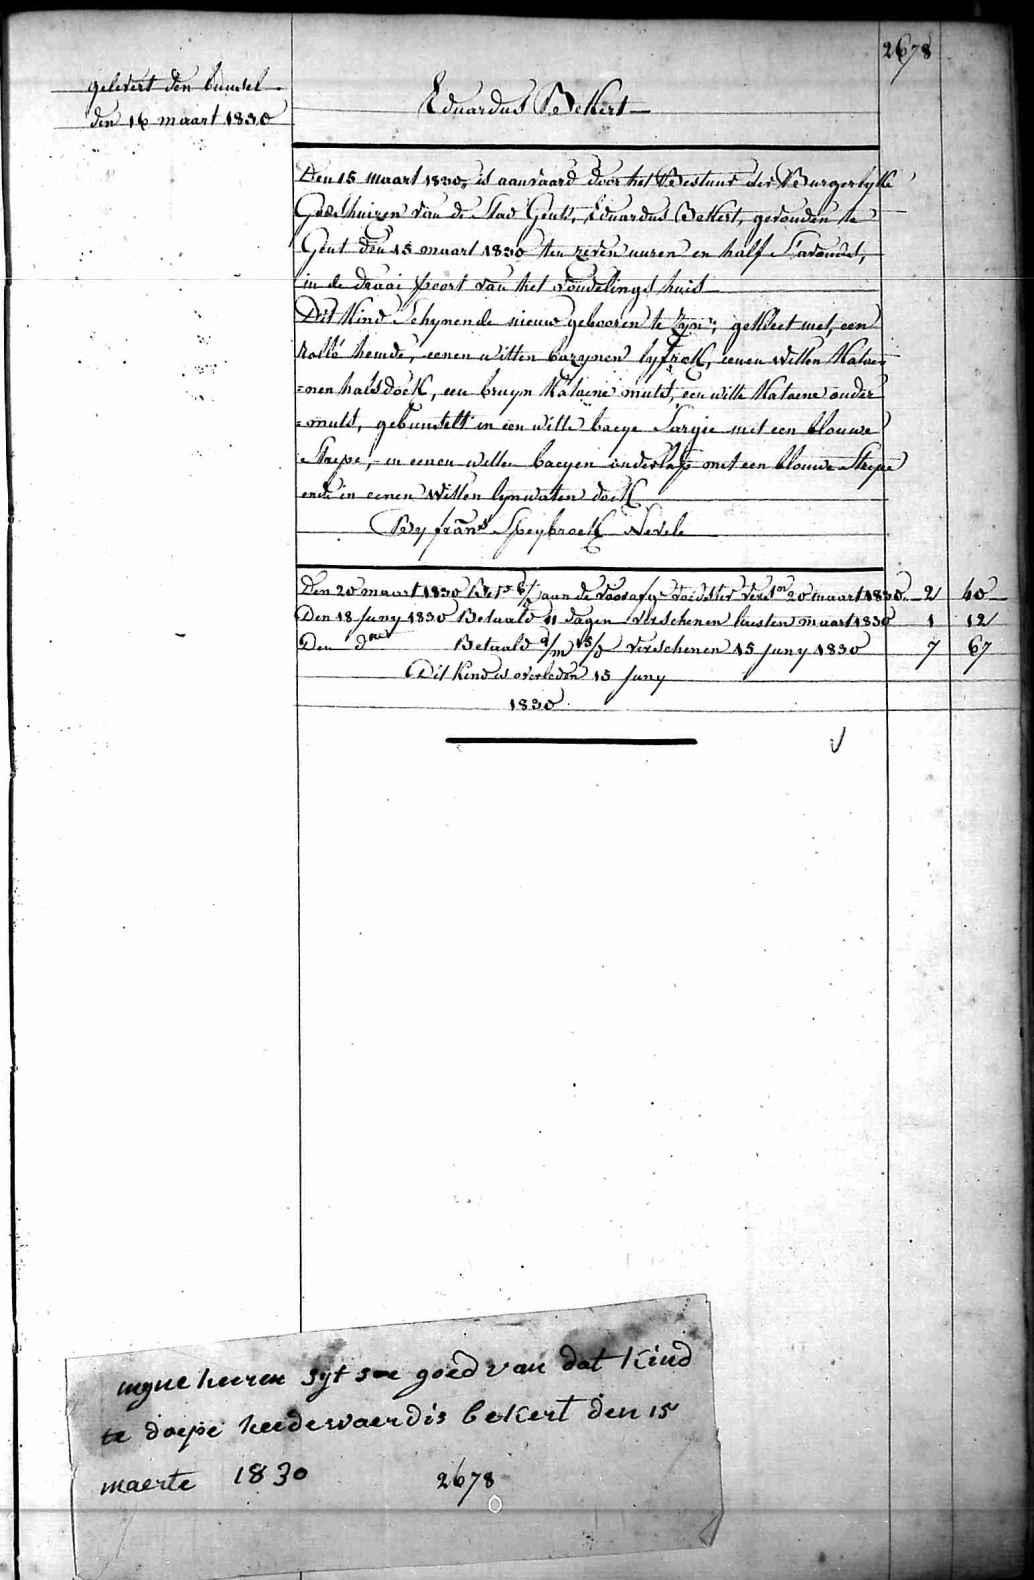 2678
gelevert den bunsel
den 16 maart 1830
Eduardus Bekkert
Den 15 maart 1830, is aanvaard door het Bestuur der Burgerlyke
Godshuizen van de Stad Gent, Eduardus Bekkert, gevonden te
Gent den 15 maart 1830 ten zeven uuren en half s'avonds,
in de draai poort van het vondelings huis
Dit Kind schynende nieuw gebooren te zyn, gekleet met, een
kolle hemde, eenen witten bazynen lyfrok, eenen witten Kataen-
=nen halsdoek, een bruyn Kataene muts, een witte Kataene onder
=muts, gebunselt in een witte baeye sargie met een blouwe
strepe, in eenen witten baeyen onderlap met een blouwe strepe
ende in eenen witten lynwaten doek
By frans Speybroeck Nevele
Den 20 maart 1830 aan de voedster 20 maart 1830 2 40
Den 18 Juny 1830 Betaald 11 dagen verschenen lausten maart 1830 1 12
Den do Betaald 2/m 15/d verschenen 15 Juny 1830 7 67
Dit kind is overleden 15 Juny
1830
myne heeren syt soe goed van dat kind
te doepe heedewaerdis bekert den 15
maerte 1830 2678